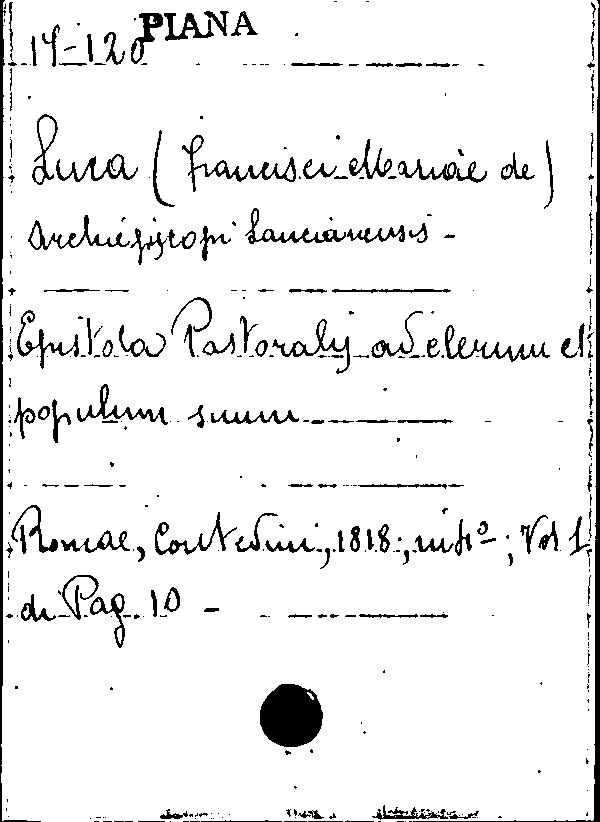 PIANA
14-120
Luca (Francisci Mariae de)
Archiepiscopi Lancianensis -
Epistola Pastoralis ad clerum et
populum suum
Romae, Contedini, 1818; inf°; Vol 1
di Pag. 10 -